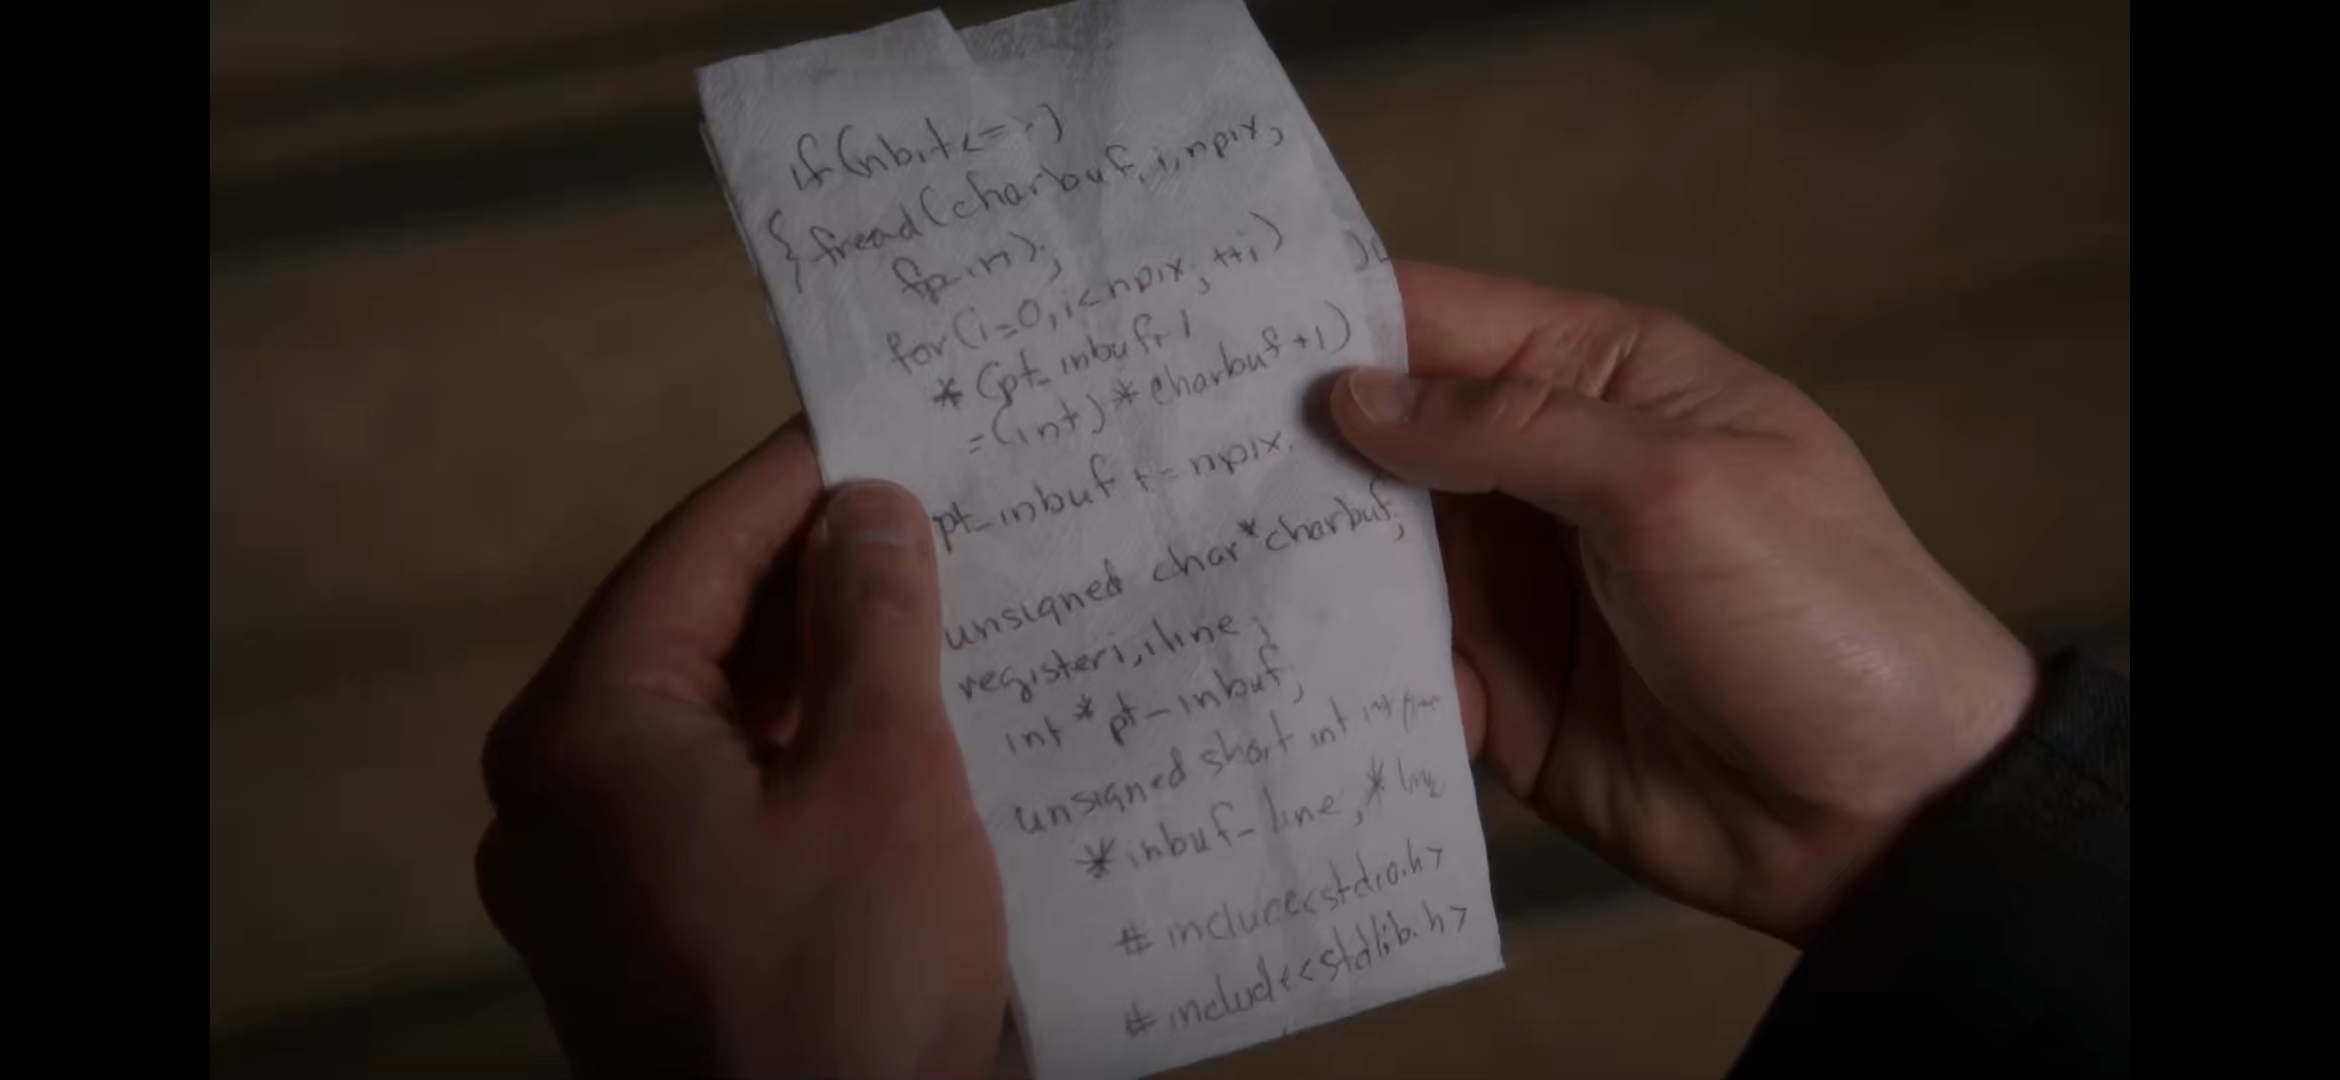 if(nbit<=
{ fread(charbuf, i, npix,
fp_in);
for(i=0, i<npix; ++i)
*(pt_inbuf+1
=(int)*charbuf+1)
pt_inbuf += npix.
unsigned char*charbuf;
registeri, iline;
int *pt_inbuf;
unsigned short int int
*inbuf_line, *
#include<stdio.h>
#include<stdlib.h>